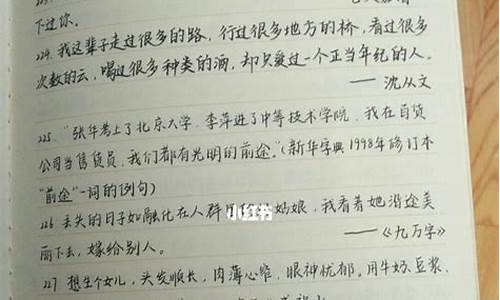 下过你。
224. 我这辈子走过很多的路，行过很多地方的桥，看过很多
次数的云，喝过很多种类的酒，却只爱过一个正当年纪的人。
—— 沈从文
225. "张华考上了北京大学，李萍进了中等技术学院，我在百货
公司当售货员，我们都有光明的前途。"(新华字典1998年修订本
"前途"一词的例句)
226 丢失的日子如融化在人群里的姑娘，我看着她沿途美
丽下去，嫁给别人。
——《九万字》
227 想生个女儿，头发顺长，肉薄心细，眼神忧郁。用牛奶豆浆、
小红书